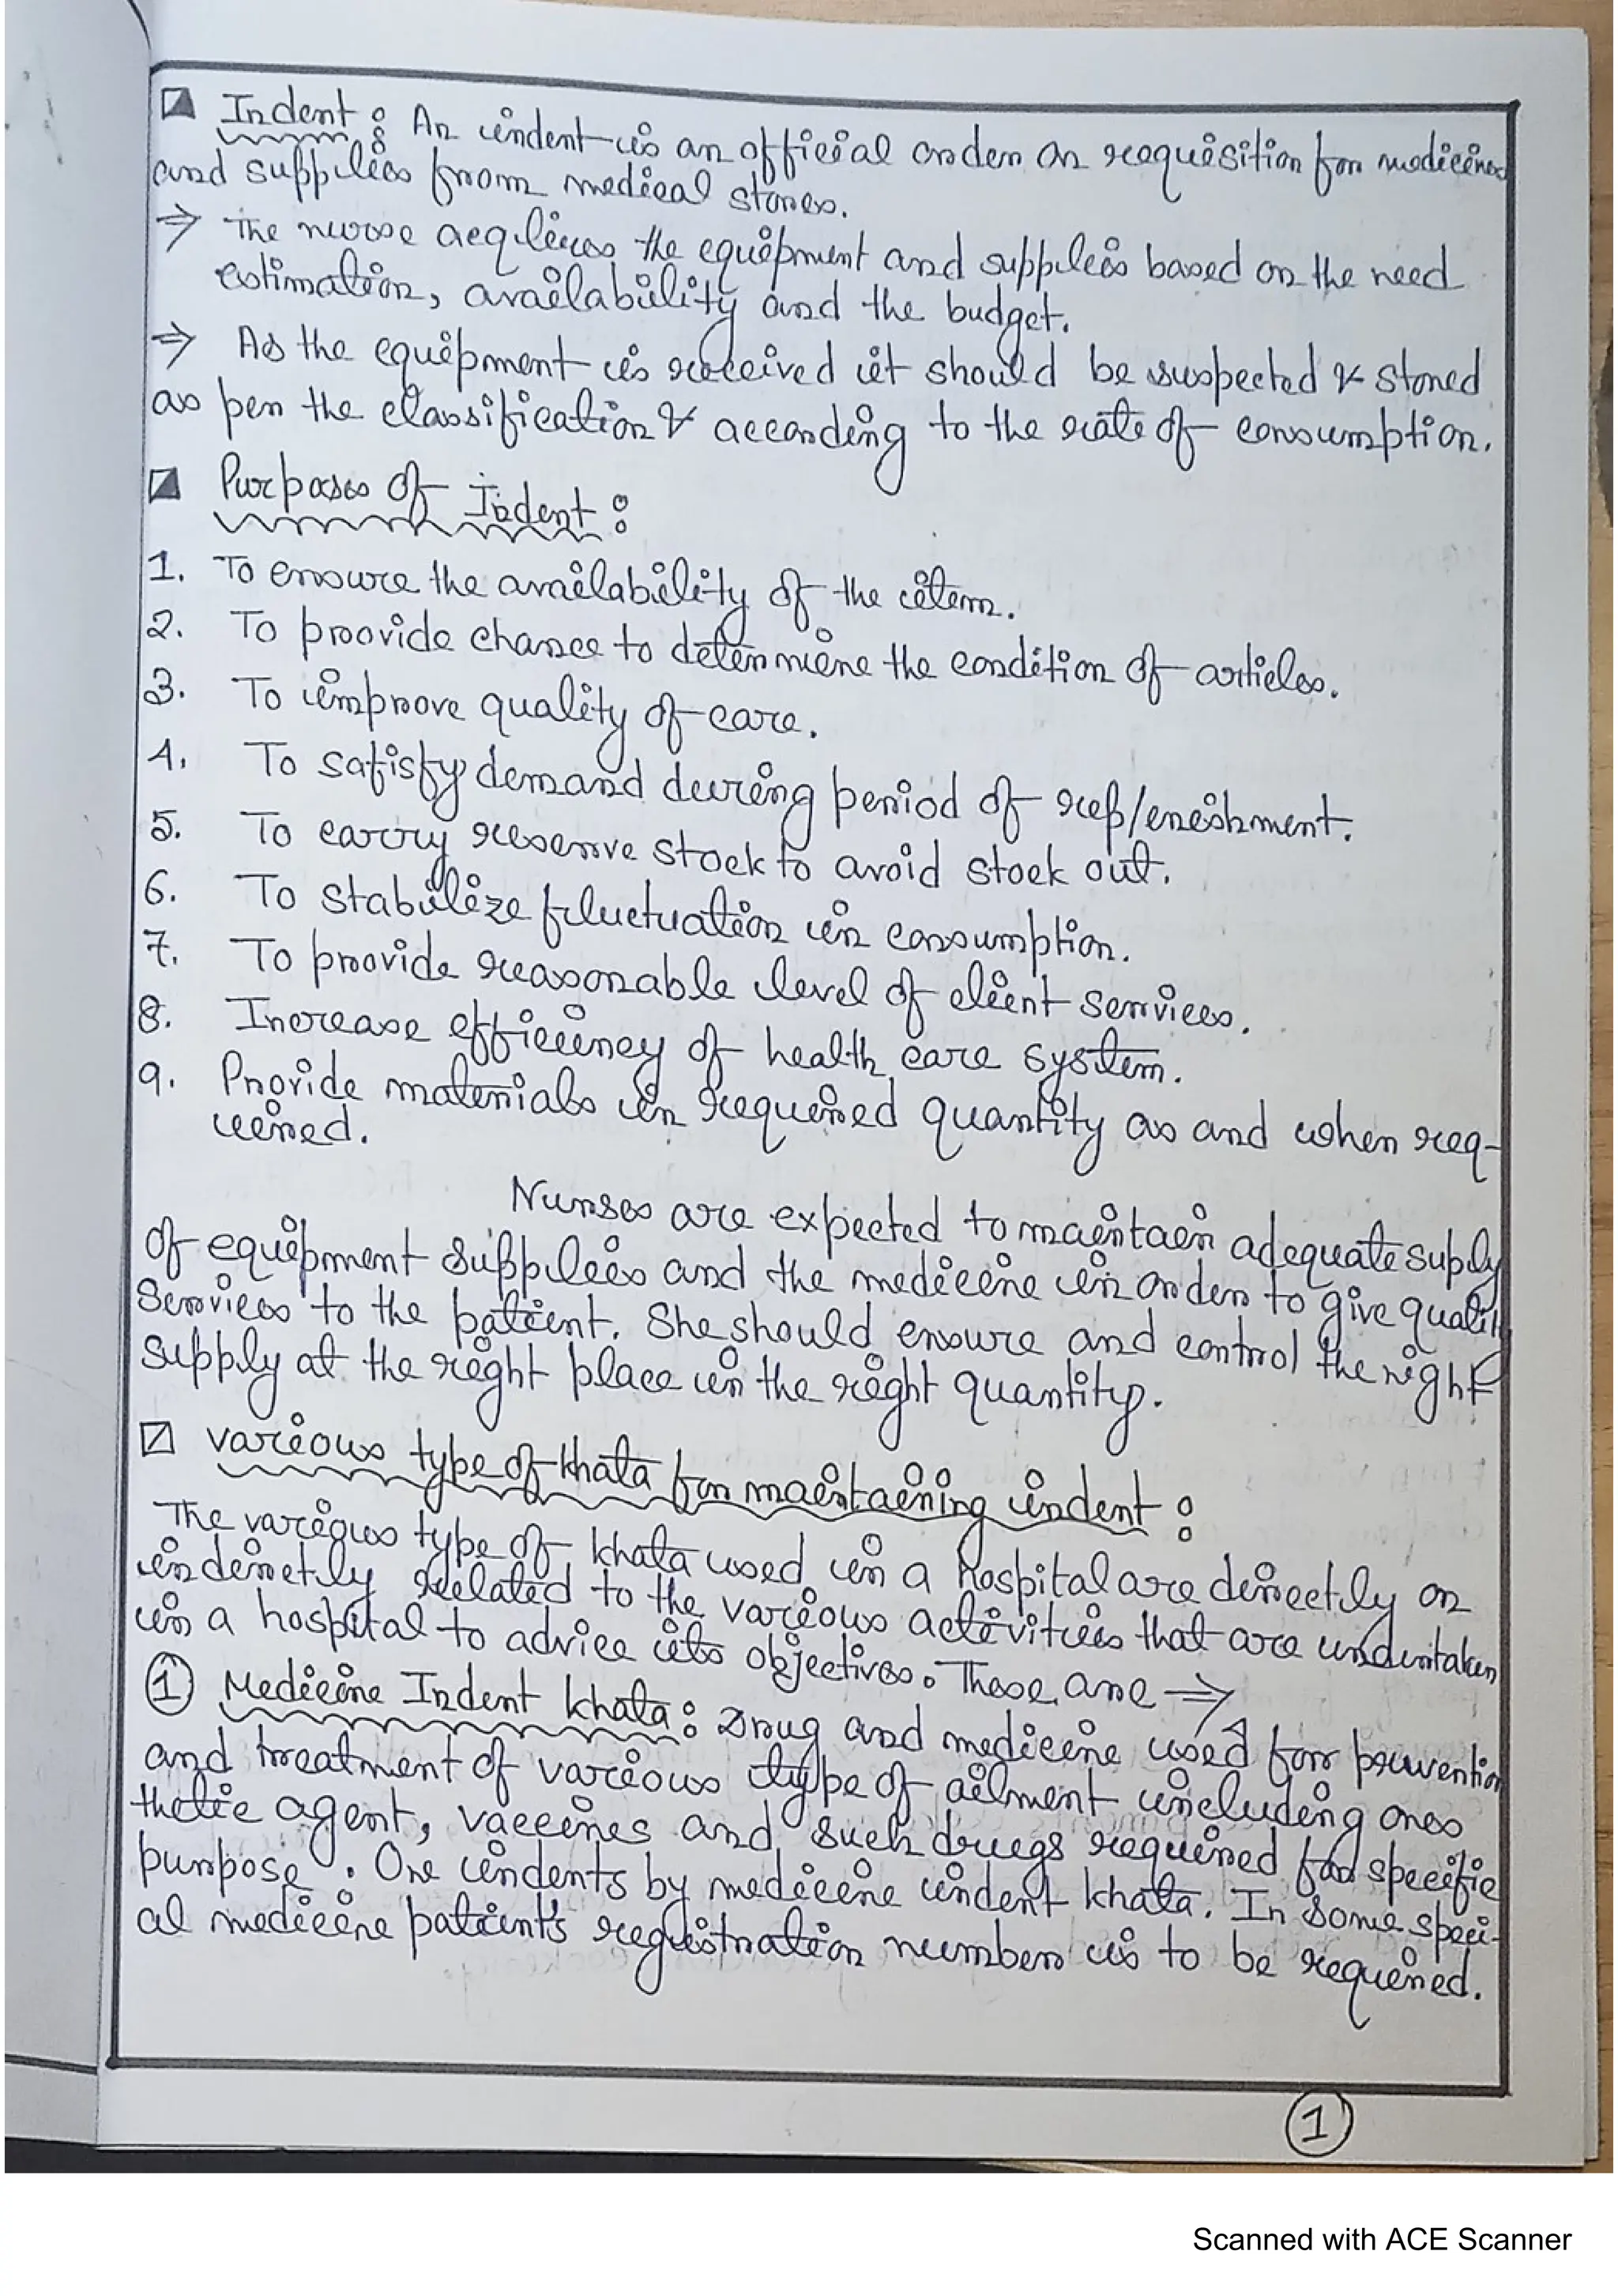 Indent : An indent is an official order or requisition for medicines
and supplies from medical stores.
⇒ The nurse acquires the equipment and supplies based on the need
estimation, availability and the budget.
⇒ As the equipment is received it should be suspected & stored
as per the classification & according to the rate of consumption.
Purposes of Indent :
1. To ensure the availability of the item.
2. To provide chance to determine the condition of articles.
3. To improve quality of care.
4. To satisfy demand during period of replenishment.
5. To carry reserve stock to avoid stock out.
6. To stabilize fluctuation in consumption.
7. To provide reasonable level of client services.
8. Increase efficiency of health care system.
9. Provide materials in required quantity as and when req-
uired.
Nurses are expected to maintain adequate supply
of equipment supplies and the medicine in order to give quality
services to the patient. She should ensure and control the right
supply at the right place in the right quantity.
Various type of khata for maintaining indent :
The various type of khata used in a hospital are directly or
indirectly related to the various activities that are undertaken
in a hospital to advice its objectives. These are ⇒
① Medicine Indent khata : Drug and medicine used for prevention
and treatment of various type of ailment including anes
thetic agent, vaccines and such drugs required for specific
purpose. One indents by medicine indent khata. In some speci-
al medicine patient's registration number is to be required.
①
Scanned with ACE Scanner